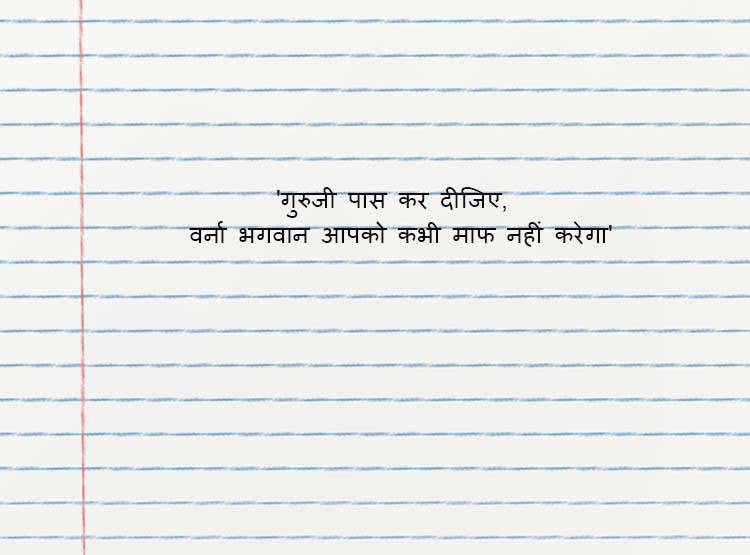 'गुरुजी पास कर दीजिए,
वर्ना भगवान आपको कभी माफ नहीं करेगा'